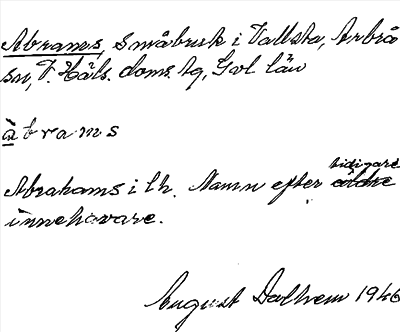 Abrams, Småbruk i Vallsta, Arbrå
sn, V. Häls. doms. tg, Gvl län
à b r a m s
Abrahams i lh. Namn efter tidigare äldre
innehavare.
August Dalhem 1946